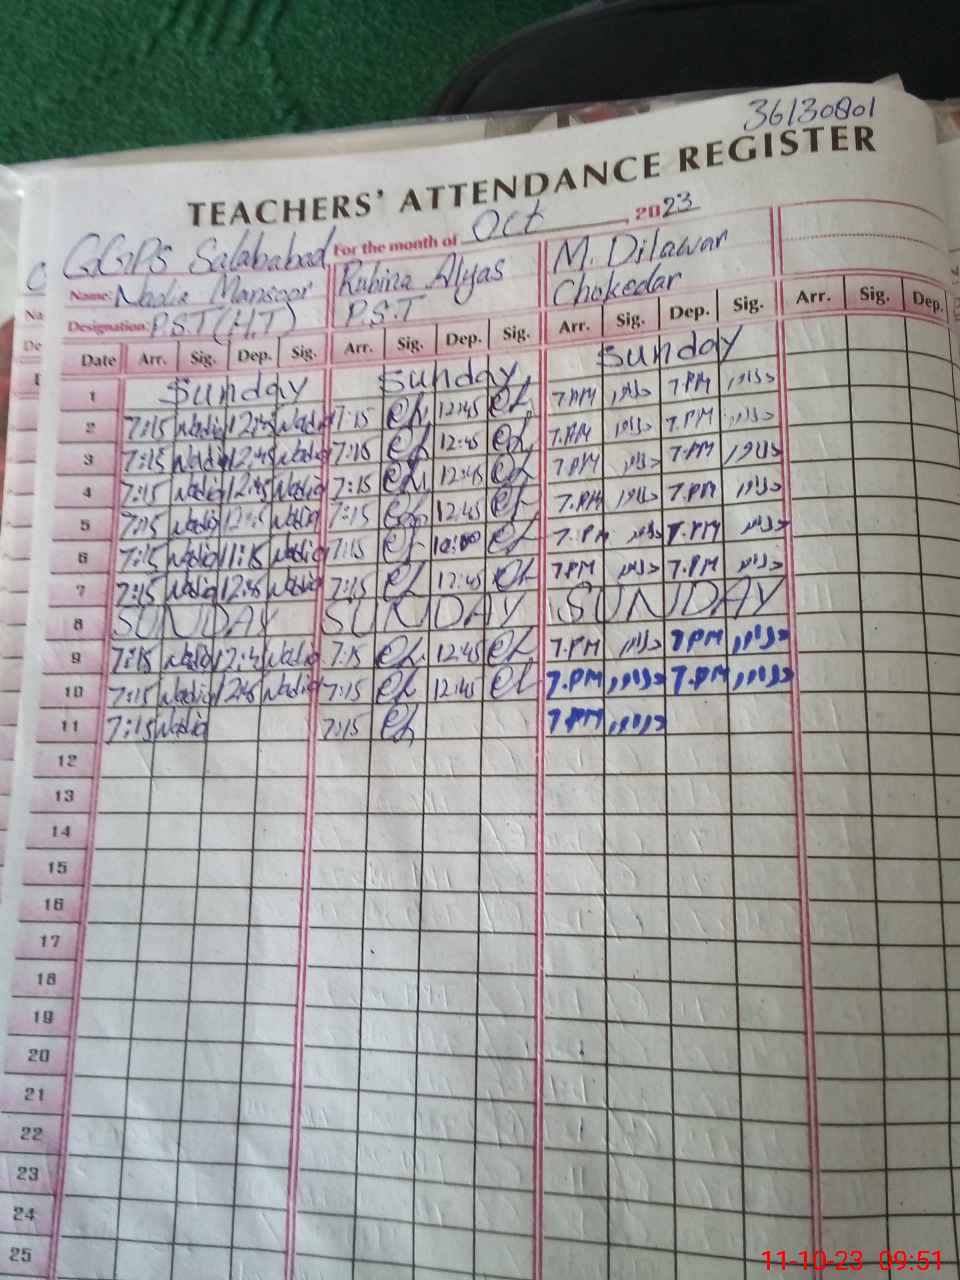 36130801
TEACHERS' ATTENDANCE REGISTER
For the month of Oct 2023
GGPS Salababad
Name: Nadia Mansoor Rubina Alyas M. Dilawar
Designation: P.S.T (H.T) P.S.T Chokedar
Date Arr. Sig. Dep. Sig. Arr. Sig. Dep. Sig. Arr. Sig. Dep. Sig. Arr. Sig. Dep.
1 Sunday Sunday Sunday
2 7:15 Nadia 12:45 Nadia 7:15 12:45 7.PM 7.PM
3 7:15 Nadia 12:45 Nadia 7:15 12:45 7.PM 7.PM
4 7:15 Nadia 12:45 Nadia 7:15 12:45 7PM 7.PM
5 7:15 Nadia Nadia 7:15 12:45 7.PM 7.PM
6 7:15 Nadia 11:15 Nadia 7:15 7.PM 7.PM
7 7:15 Nadia Nadia 7:15 12:45 7PM 7.PM
8 SUNDAY SUNDAY SUNDAY
9 7:15 Nadia Nadia 7:15 12:45 7.PM 7PM
10 7:15 Nadia 12:45 Nadia 7:15 12:45 7.PM 7.PM
11 7:15 Nadia 7:15 7PM
12
13
14
15
16
17
18
19
20
21
22
23
24
25
11-10-23 09:51